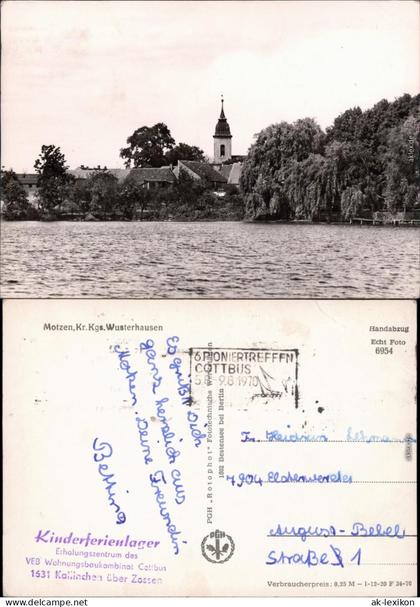 Motzen, Kr. Kgs. Wusterhausen
Handabzug
Echt Foto
6954
6. PIONIERTREFFEN
COTTBUS
9.8.1970
Es grüßt Dich
ganz herzlich aus
Motzen. Deine Freundin
Bettina
PGH „Rotophot" Fototechnische
1602 Bestensee bei Berlin
PGH
7904 Elsterwerda
August-Bebel
Straße 1
Kinderferienlager
Erholungszentrum des
VEB Wohnungsbaukombinat Cottbus
1631 Kallinchen über Zossen
Verbraucherpreis: 0,25 M - I-12-20 F 34-70
ak-lexikon.com